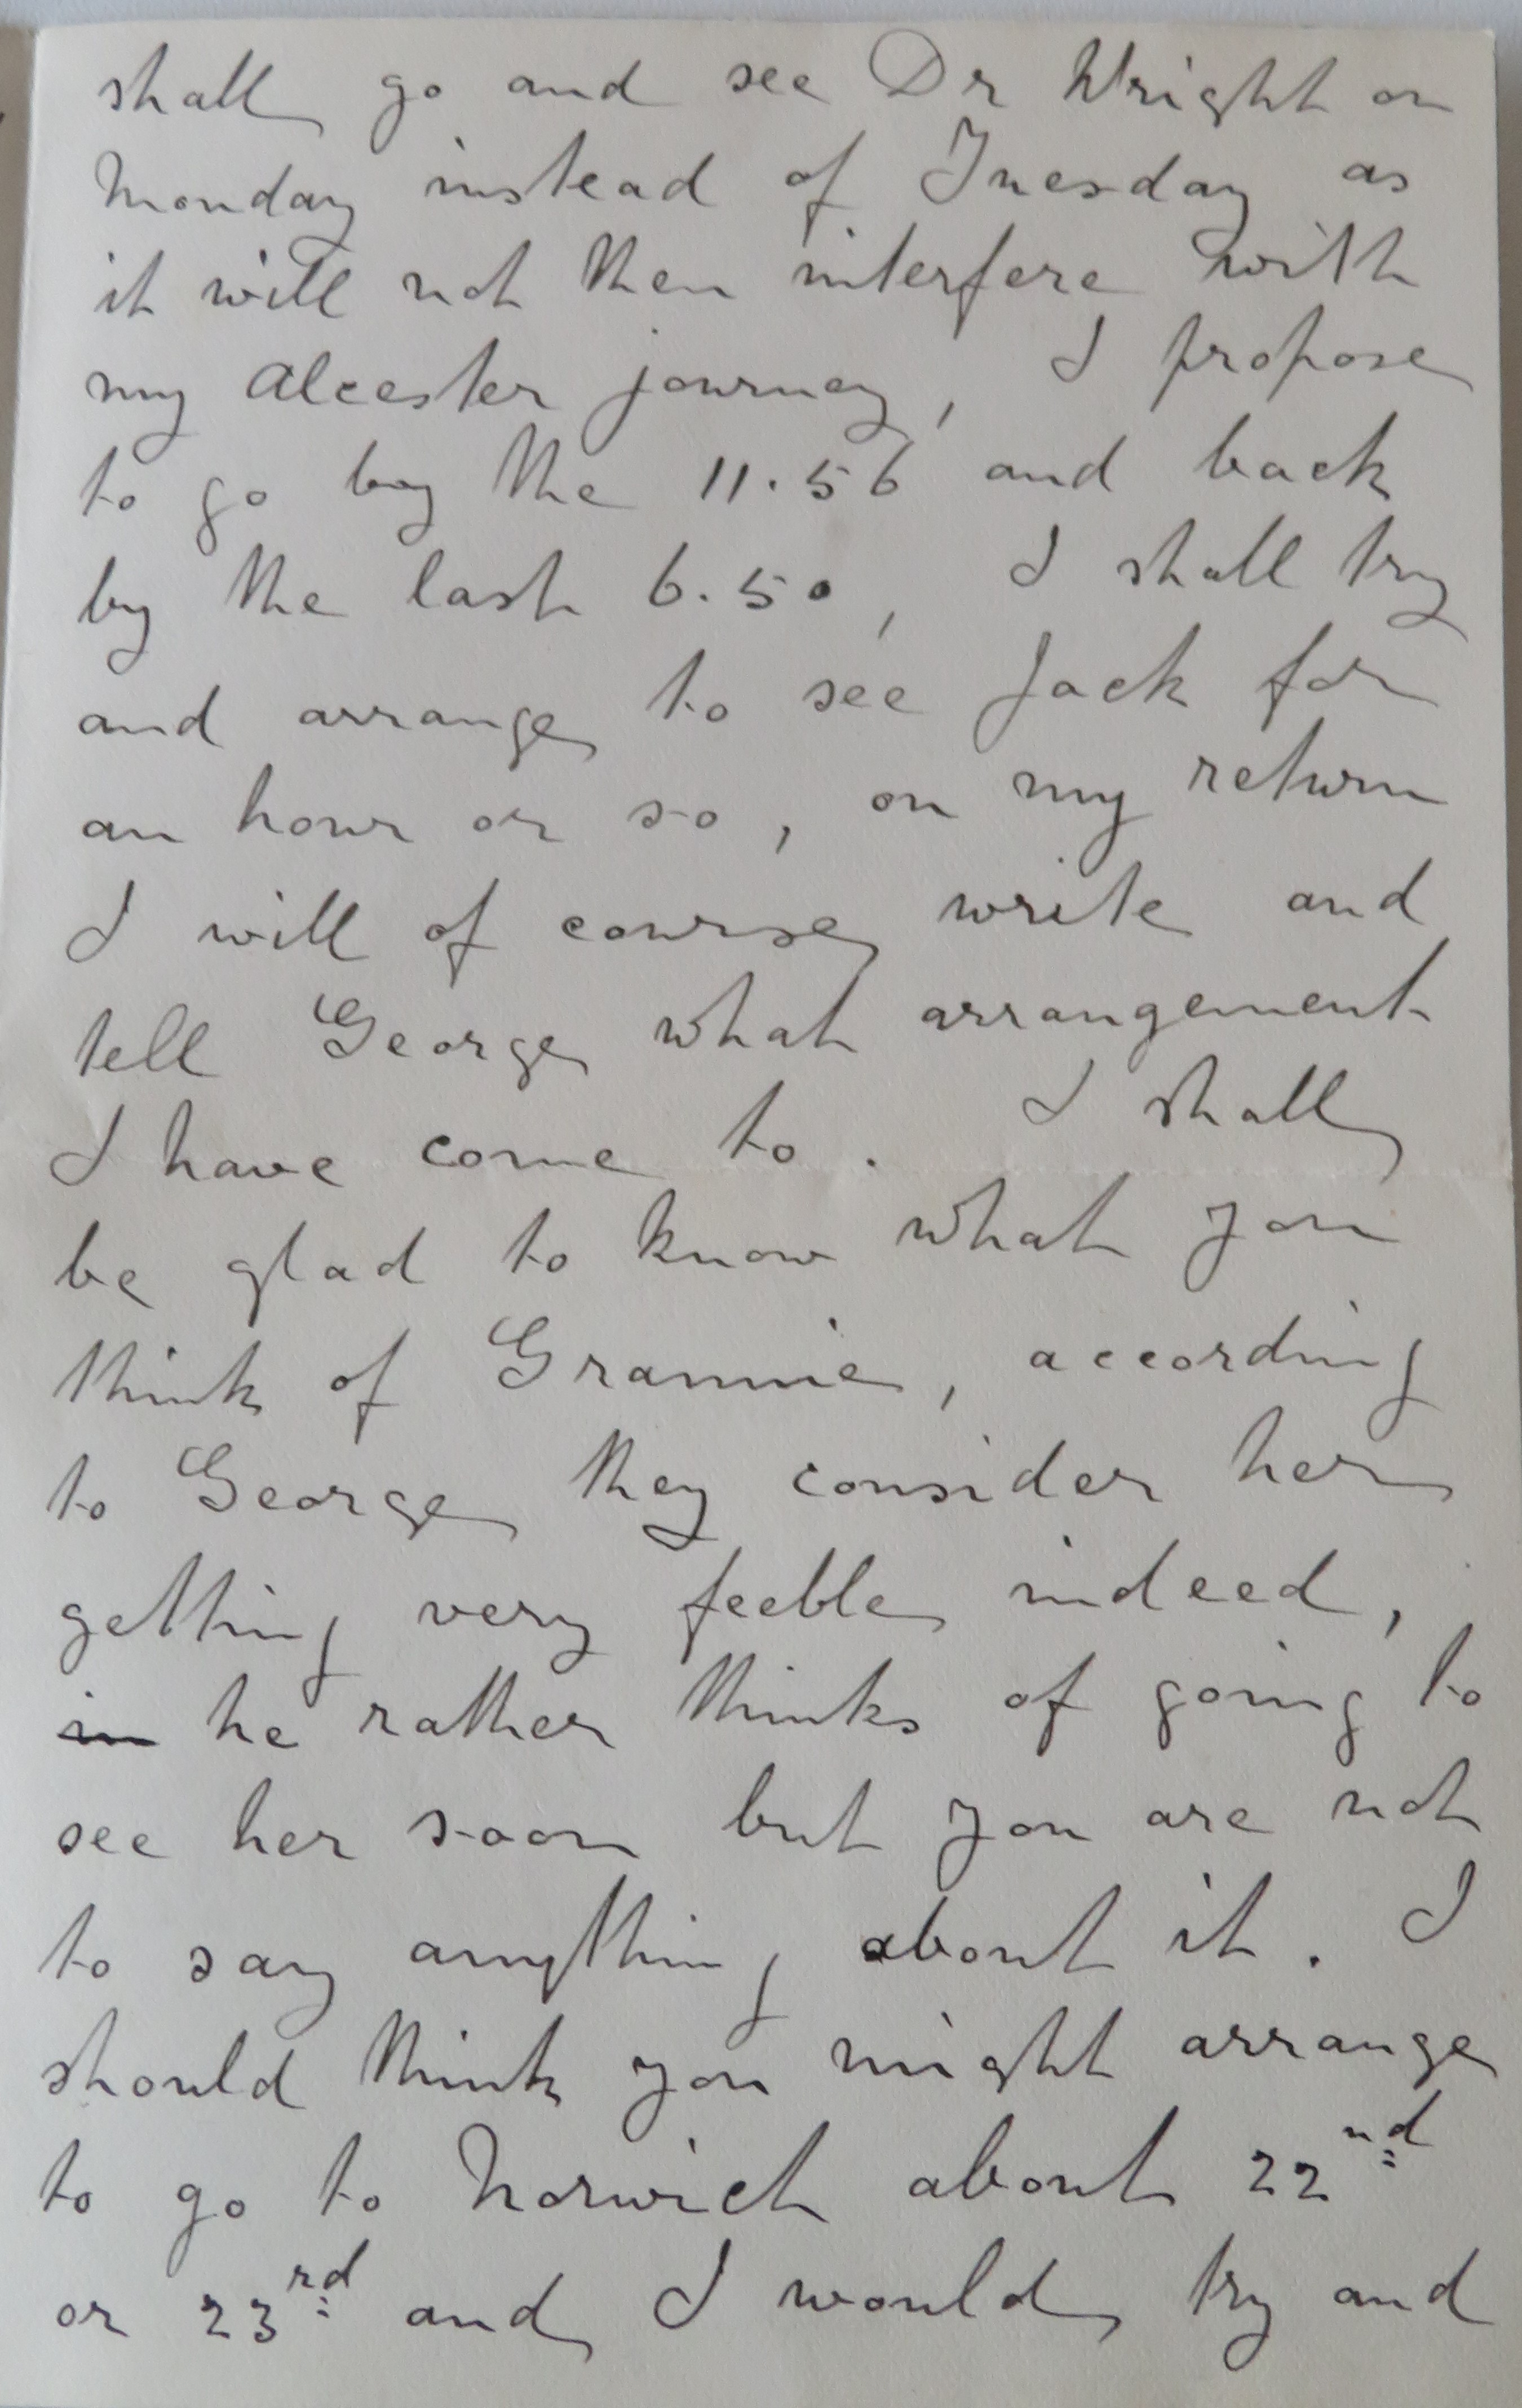 shall go and see Dr Wright on
Monday instead of Tuesday as
it will not then interfere with
my Alcester journey, I propose
to go by the 11.56 and back
by the last 6.50, I shall try
and arrange to see Jack for
an hour or so, on my return
I will of course write and
tell George what arrangement
I have come to. I shall
be glad to know what you
think of Grannie, according
to George they consider her
getting very feeble indeed,
in he rather thinks of going to
see her soon but you are not
to say anything about it. I
should think you might arrange
to go to Norwich about 22nd
or 23rd and I would try and